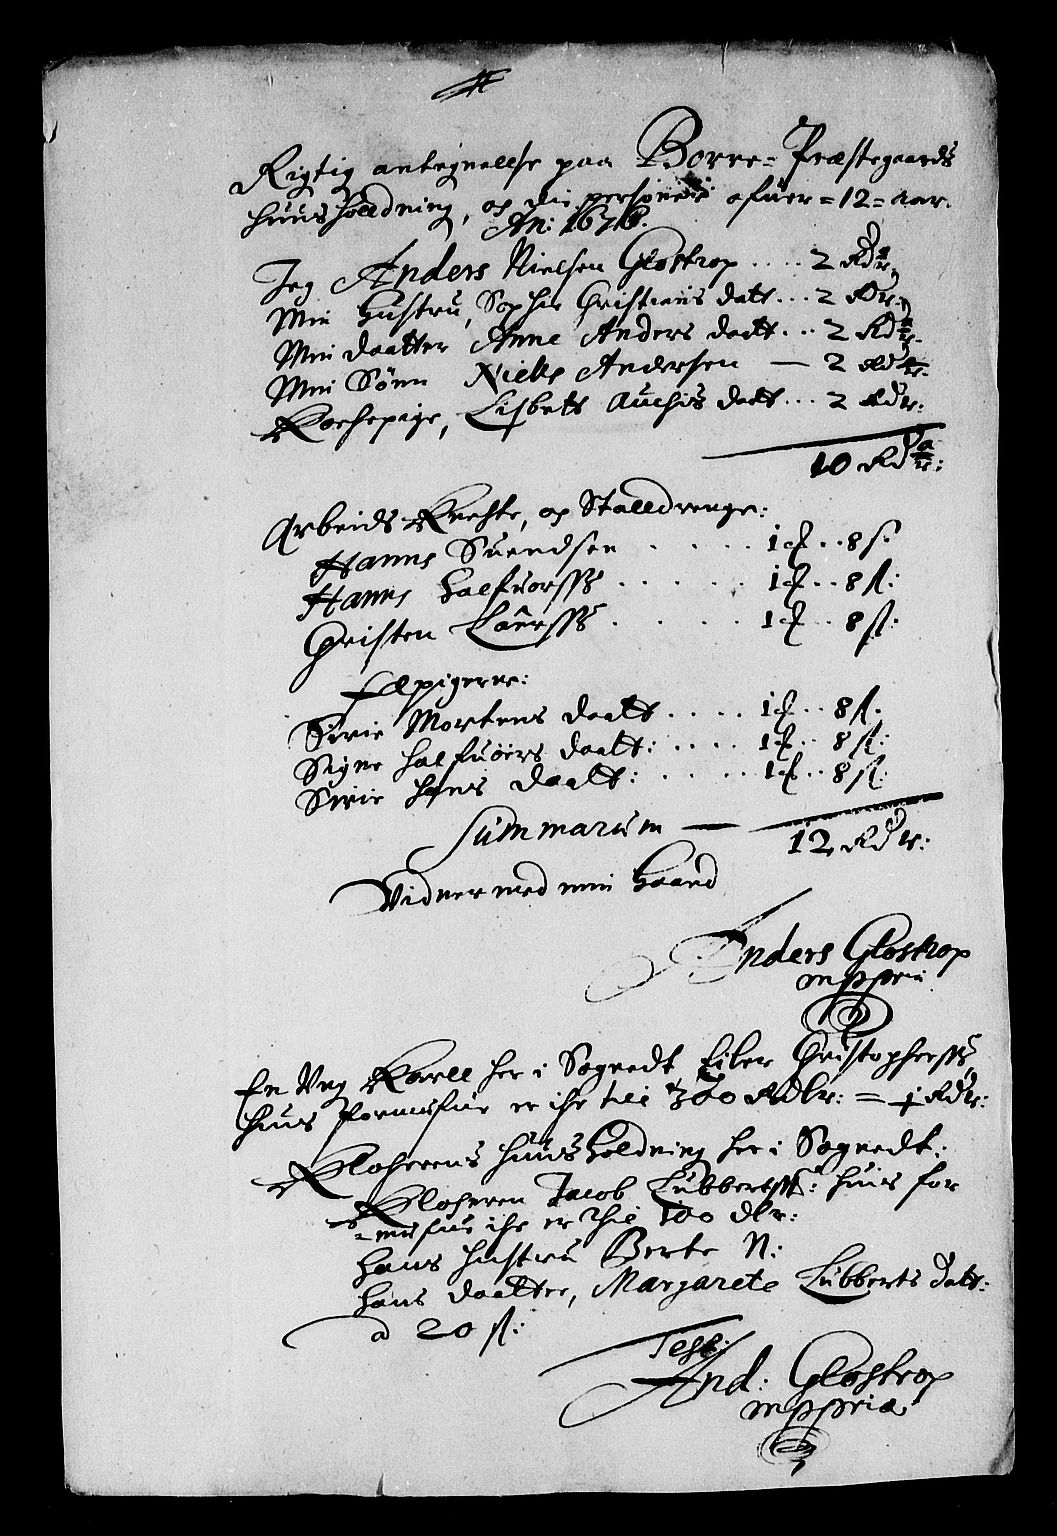 Rigtig antegnelse paa Borre-Præstegaards
huusholdning, og die personer ofuer =12= aar.
An: 1678.
Jeg Anders Nielsen Glostrop .... 2 Rdr
Min Hustru, Sophie Christens datt... 2 Rdr:
Min daatter Anne Anders daatt... 2 Rdr.
Min Sønn Niels Andersen — 2 Rdr.
Kochepige, Lisbets Auchis datt... 2 Rdr:
10 Rdr:
Arbeids Knechte, og Stalldrenge:
Hanns Suendsen . . . . . 1 ʄ .. 8 s.
Hanns Halfuorss . . . . . 1 ʄ .. 8 sl:
Christen Lauerss . . . . . 1 ʄ .. 8 sl:
Fæpigerne:
Sirie Mortens daatt . . . . 1 ʄ .. 8 sl.
Signe halfuors daatt: . . . . 1 ʄ .. 8 sl:
Sirie hans daatt: . . . . 1 ʄ .. 8 sl:
Summarum — 12 Rdr:
Vidner med min Haand
Anders Glostrop
mppria
En Ung Karll her i Sognedt Eiler Christopherss,
huus formufue er ihr till 300 Rdlr: = 1 Rdr:
Klocherens huusholdning her i Sognedt:
Klocheren Jacob Lubbertss: huis for
=mufue ihr er Thil 100 dlr:
hans hustru Berte N:
hans daatter, Margarete Lubberts datt:
a 20 sl:
Test:
And: Glostrop
mppria